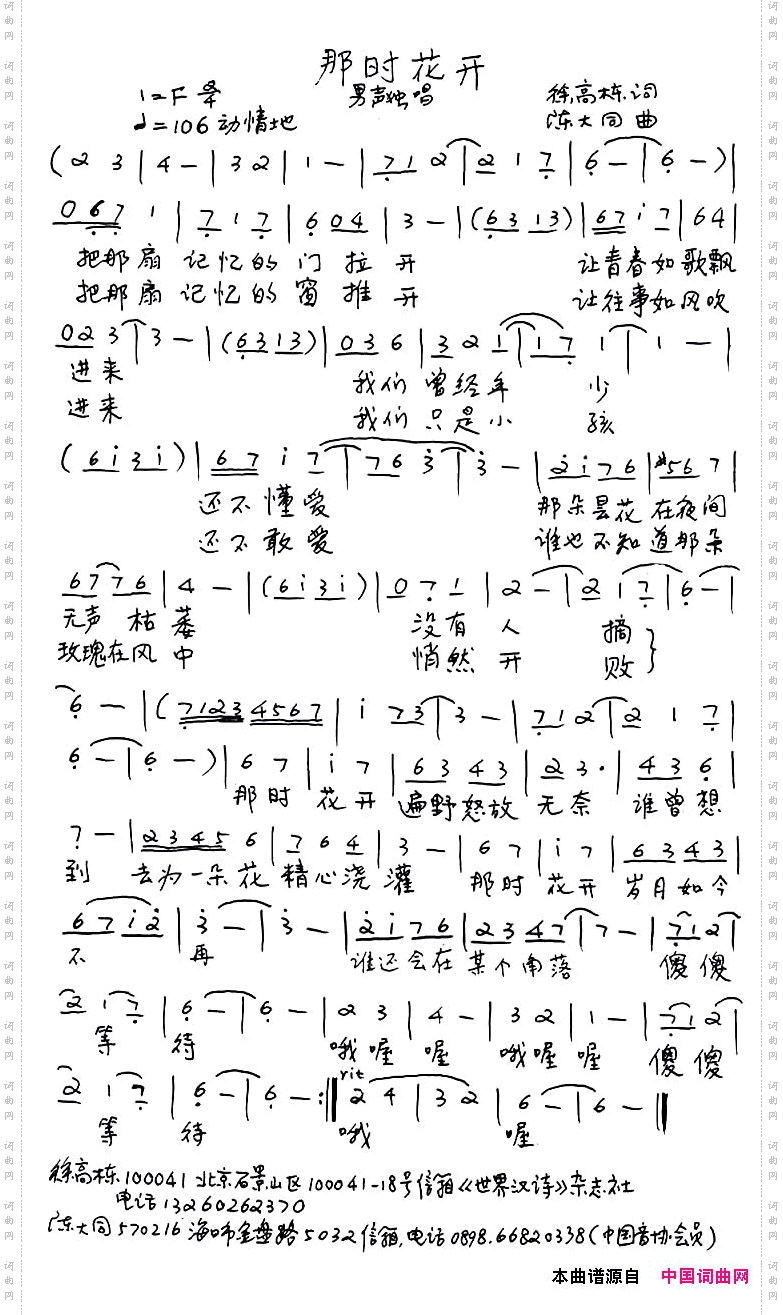 那时花开
1=F 4/4
男声独唱
徐高栋 词
♩=106 动情地
陈大同 曲
(2 3 | 4 - | 3 2 | 1 - | 7 1 2 | 2 1 7 | 6 - | 6 - ) |
0 6 7 1 | 7 1 7 | 6 0 4 | 3 - | (6 3 1 3) | 6 7 i 7 | 6 4 |
把那扇 记忆的 门 拉 开 让青春如歌飘
把那扇 记忆的 窗 推 开 让往事如风吹
0 2 3 | 3 - | (6 3 1 3) | 0 3 6 | 3 2 1 | 1 7 1 | 1 - |
进来 我们 曾经年 少
进来 我们 只是小 孩
(6 i 3 i) | 6 7 i 7 | 7 6 3 | 3 - | 2 i 7 6 | #5 6 7 |
还不懂爱 那朵昙花 在夜间
还不敢爱 谁也不知道那朵
6 7 7 6 | 4 - | (6 i 3 i) | 0 7 1 | 2 - | 2 1 7 | 6 - |
无声 枯萎 没有 人 摘
玫瑰在风 中 悄然 开 败
6 - | (7 1 2 3 4 5 6 7 | i 7 3 | 3 - | 7 1 2 | 2 1 7 |
6 - | 6 - ) | 6 7 | i 7 | 6 3 4 3 | 2 3 · | 4 3 6 |
那时 花开 遍野怒放 无奈 谁曾想
7 - | 2 3 4 5 6 | 7 6 4 | 3 - | 6 7 | i 7 | 6 3 4 3 |
到 去为一朵花 精心浇 灌 那时 花开 岁月如今
6 7 i 2 | 3 - | 3 - | 2 i 7 6 | 2 3 4 7 | 7 - | 7 1 2 |
不 再 谁还会在 某个角落 傻傻
2 1 7 | 6 - | 6 - | 2 3 | 4 - | 3 2 | 1 - | 7 1 2 |
等 待 哦喔 喔 哦喔 喔 傻傻
rit
2 1 7 | 6 - | 6 - :‖ 2 4 | 3 2 | 6 - | 6 - ‖
等 待 哦 喔
徐高栋 100041 北京石景山区 100041-18号信箱《世界汉诗》杂志社
电话 13260262370
陈大同 570216 海口市金盘路 5032信箱,电话 0898.66820338(中国音协会员)
本曲谱源自 中国词曲网